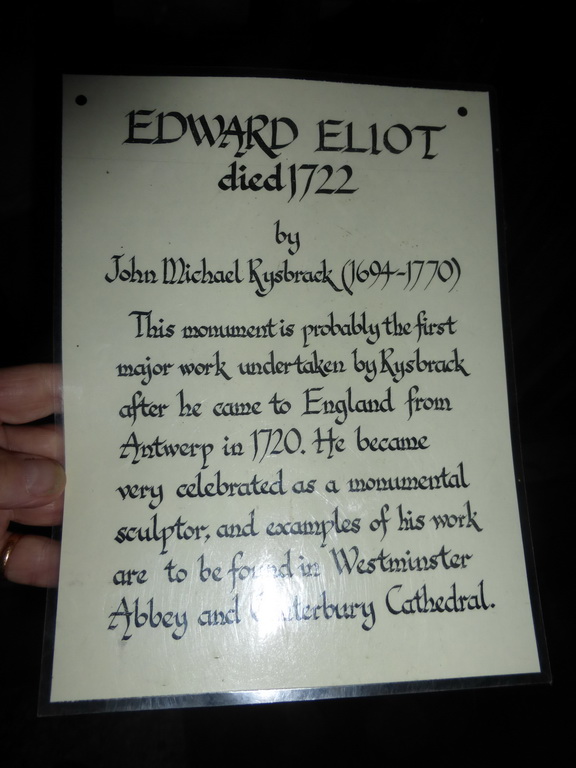 EDWARD ELIOT
died 1722
by
John Michael Rysbrack (1694-1770)
This monument is probably the first
major work undertaken by Rysbrack
after he came to England from
Antwerp in 1720. He became
very celebrated as a monumental
sculptor, and examples of his work
are to be found in Westminster
Abbey and Canterbury Cathedral.